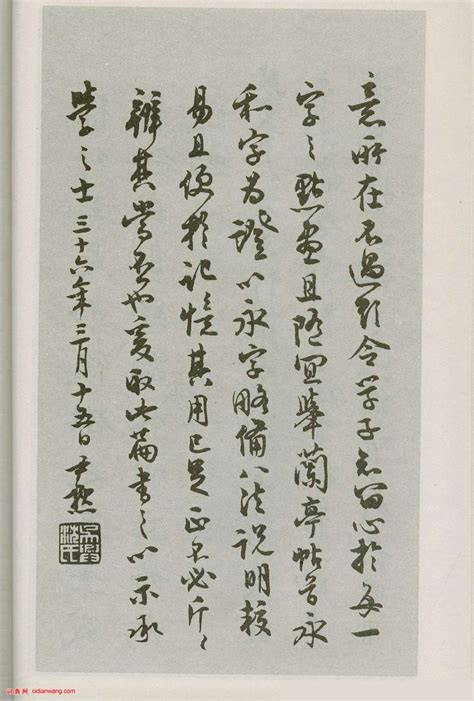 意所在不過欲令學子知留心於每一
字之點畫且隨宜舉蘭亭帖首永
和字為證以永字略備八法說明較
易且便於記憶其用已足正不必斤〻
辨其當否也爰取此篇書之以示承
學之士三十六年三月十五日尹默
吳興沈氏
词典网 cidianwang.com